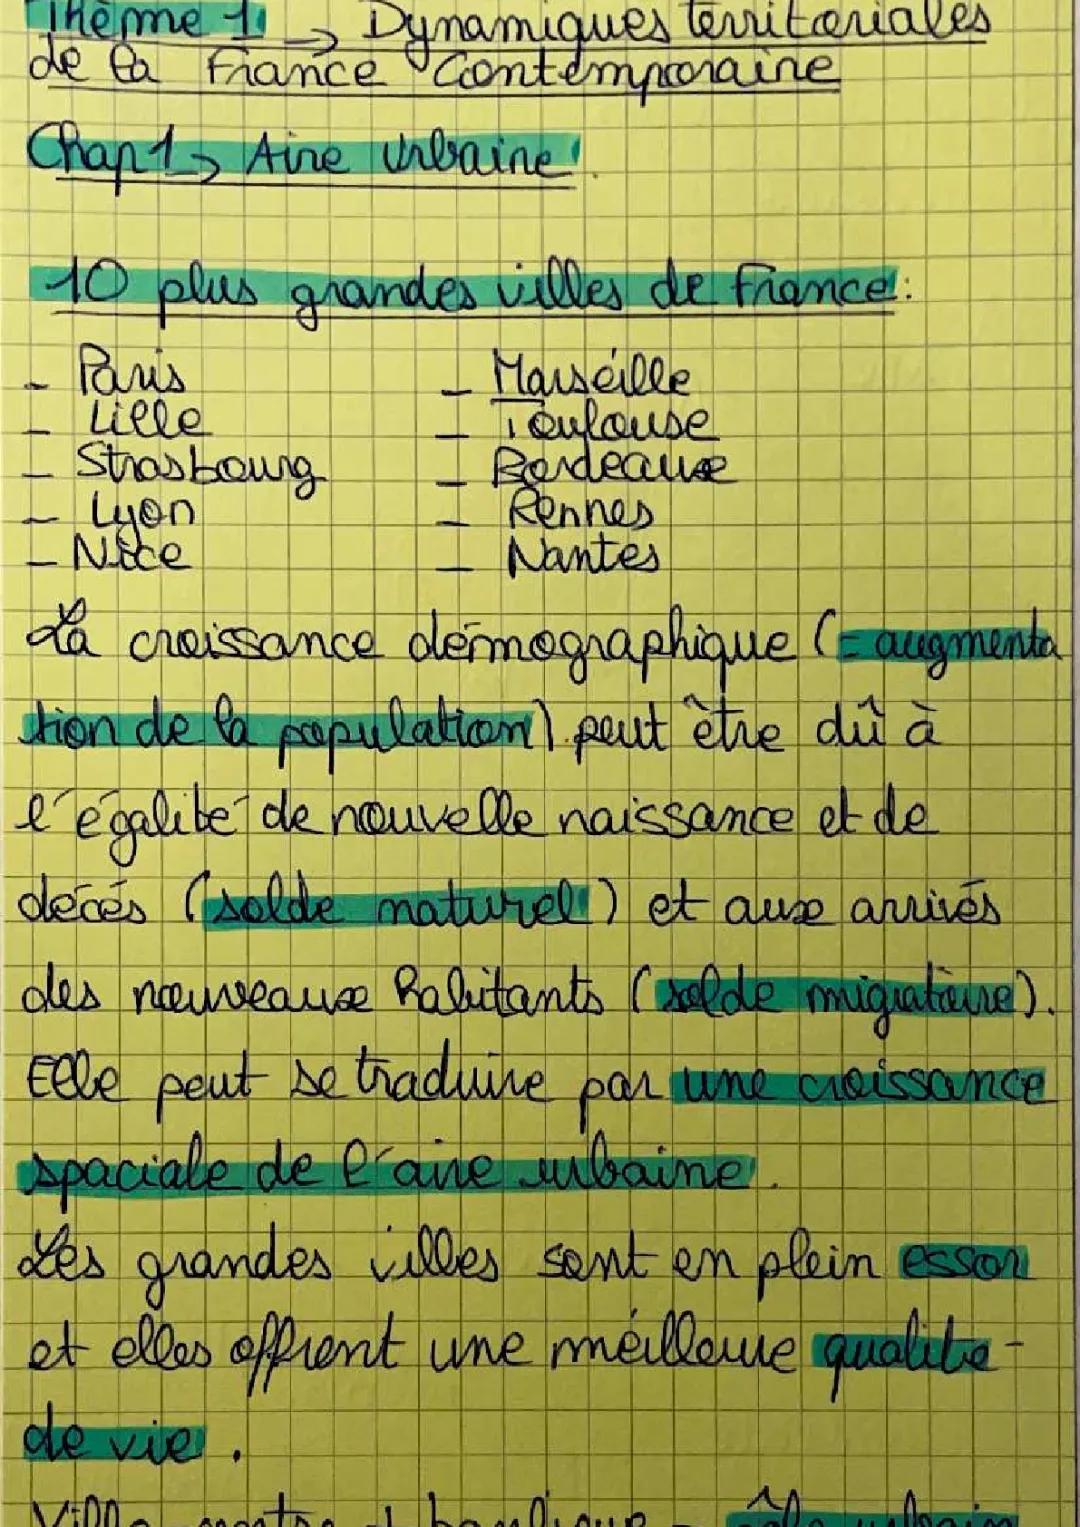 Thème 1 → Dynamiques territoriales
de la France Contemporaine
Chap 1 → Aire Urbaine
10 plus grandes villes de France:
- Paris - Marseille
- Lille - Toulouse
- Strasbourg - Bordeaux
- Lyon - Rennes
- Nice - Nantes
La croissance démographique (= augmenta
tion de la population) peut être dû à
l'égalité de nouvelle naissance et de
décés (solde naturel) et aux arrivés
des nouveaux habitants (solde migratoire).
Elle peut se traduire par une croissance
spaciale de l'aire urbaine.
Les grandes villes sont en plein essor
et elles offrent une meilleure qualité -
de vie.
Ville banlieue = pôle urbain